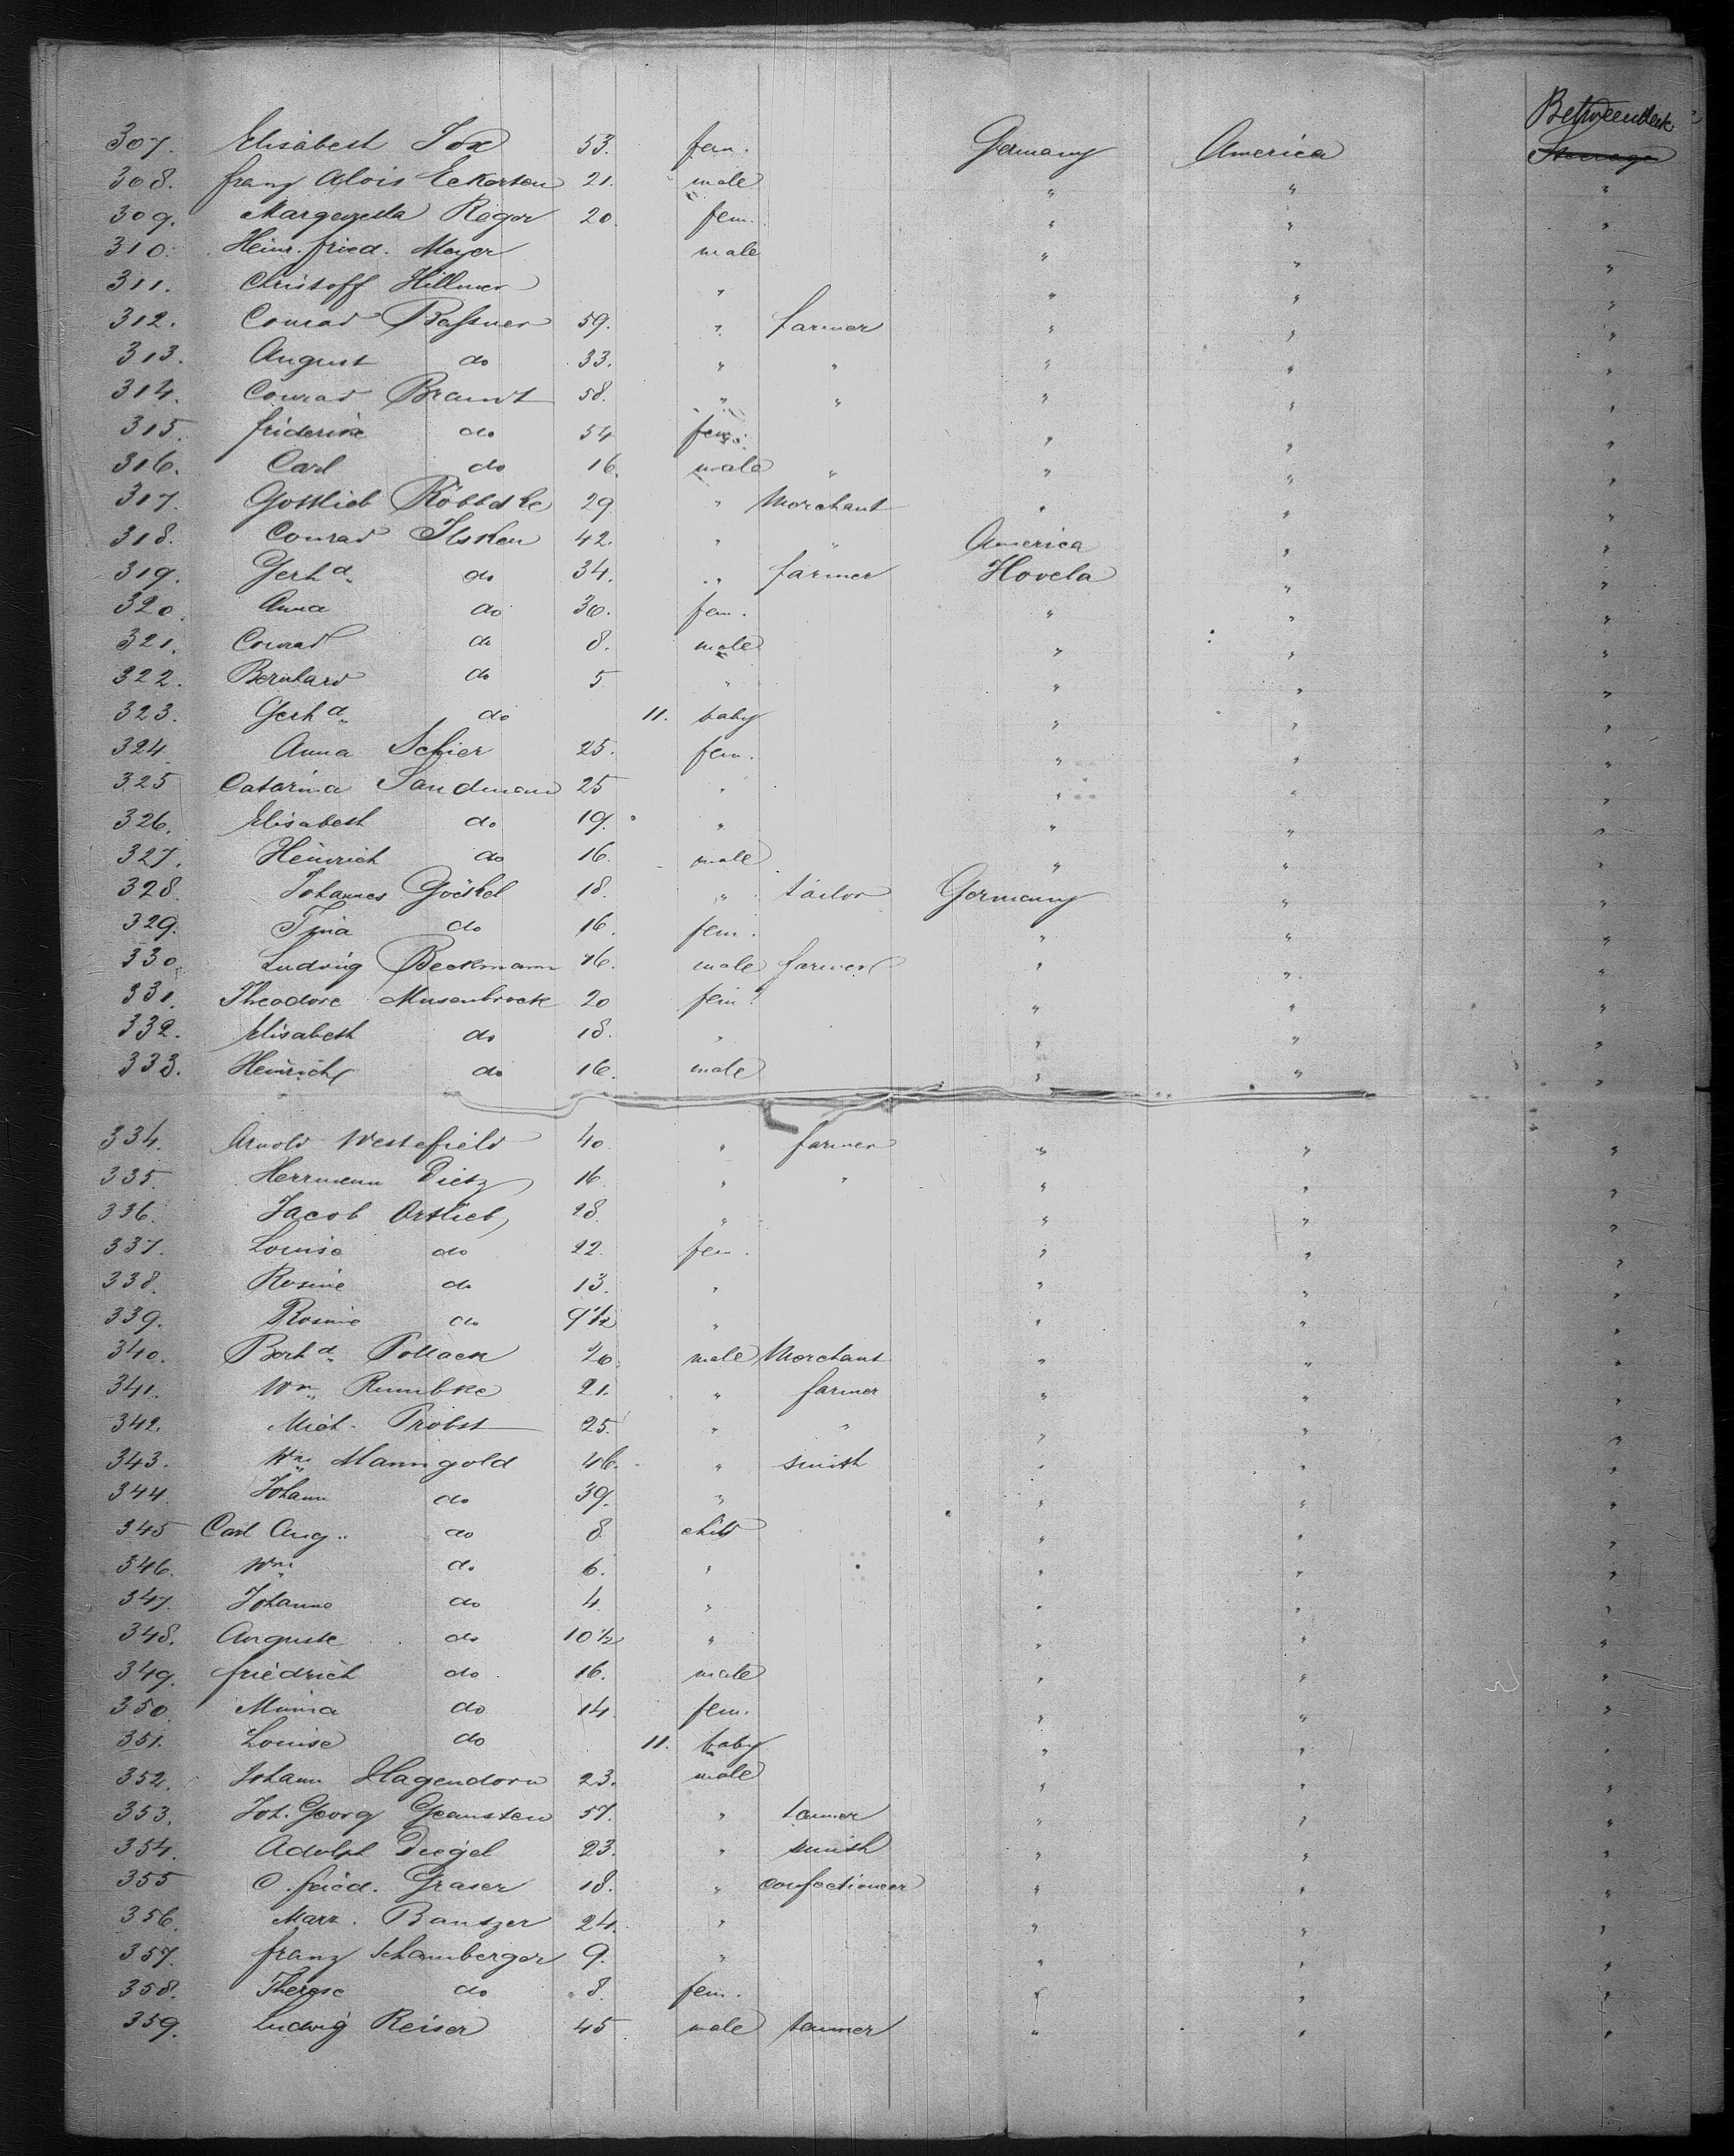 Betweendeck
307. Elisabeth Fox 53. fem. Germany America Steerage
308. franz Alois Eckerten 21. male " " "
309. Reger 20 fem. " " "
310. Heinr. fried. Meyer male " " "
311. Christoff Hillmer " " " "
312. Conrad Bassner 59. " farmer " " "
313. August do 33. " " " " "
314. Conrad Brandt 58. " " " " "
315. friderike do 54 fem. " " "
316. Carl do 16. male " " " "
317. Gottlieb 29 " Merchant " " "
318. Conrad 42. " " America " "
319. Gerhd. do 34. " farmer Hovela " "
320. Anna do 30. fem. " " "
321. Conrad do 8. male " " "
322. Bernhard do 5 " " " "
323. Gerhd. do 11. baby " " "
324. Anna Schier 25. fem. " " "
325 Catarina Sandmann 25 " " " "
326. Elisabeth do 19. " " " "
327. Heinrich do 16. male " " "
328. Johannes Göckel 18. " tailor Germany " "
329. Tina do 16. fem. " " "
330. Ludwig Beckmann 16. male farmer " " "
331. Theodore Musenbrock 20 fem. " " "
332. Elisabeth do 18. " " " "
333. Heinrich do 16. male " " "
334. Arnold Westefield 40 " farmer " " "
335. Herrmann Dietz 16 " " " " "
336. Jacob Ortlieb, 28. " " " "
337. Louise do 22. fem. " " "
338. Rosine do 13. " " " "
339. Rosine do 9 1/2 " " " "
340. Berhd. Pollack 20. male Merchant " " "
341. Wm. Rumbke 21. " farmer " " "
342. Mich. Probst 25. " " " " "
343. Wm. Manngold 46. " smith " " "
344. Johann do 39. " " " "
345 Carl Aug.. do 8. child " " "
346. Wm. do 6. " " " "
347. Johanne do 4. " " " "
348. Auguste do 10 1/2 " " " "
349. friedrich do 16. male " " "
350. Minna do 14 fem. " " "
351. Louise do 11. baby " " "
352. Johann Hagendorn 23. male " " "
353. Joh. Georg 57. " tanner " " "
354. Adolph Diegel 23. " smith " " "
355 C. fried. Graser 18. " confectioneer " " "
356. Marx. Bantzer 24. " " " "
357. franz Schamberger 9. " " " "
358. Therese do 8. fem. " " "
359. Ludwig Reiser 45 male tanner " " "